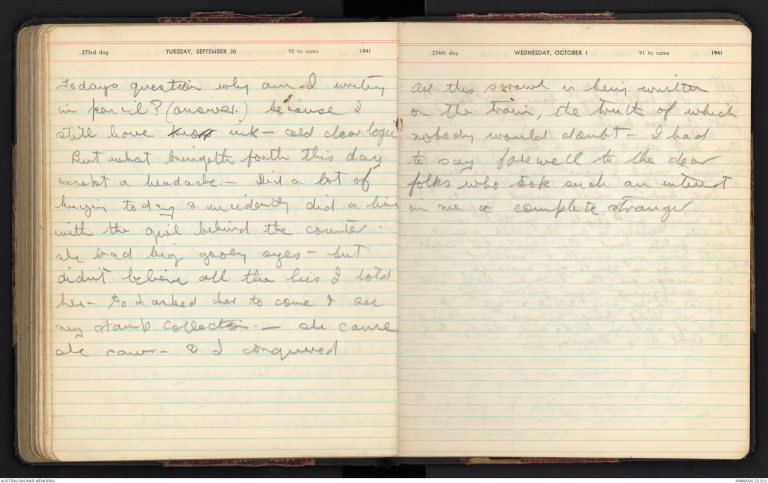 273rd day TUESDAY, SEPTEMBER 30 92 to come 1941
Todays question why am I writing
in pencil? (answer.) because I
still have ink - cold clear logic
But what bringeth forth this day
except a headache. - Did a lot of
buying today & incidently did a line
with the girl behind the counter.
she had big gooey eyes - but
didn't believe all the lies I told
her - So I asked her to come & see
my stamp collection. - she came
she saw - & I conquered.
274th day WEDNESDAY, OCTOBER 1 91 to come 1941
All this scrawl is being written
on the train, the truth of which
nobody would doubt - I had
to say farewell to the dear
folks who took such an interest
in me a complete stranger
AUSTRALIAN WAR MEMORIAL